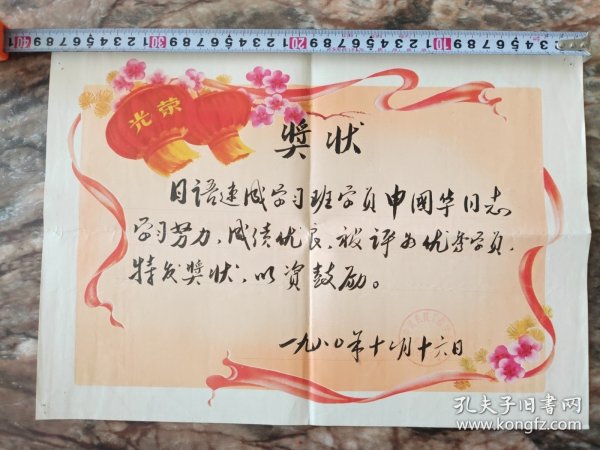 光荣
奖状
日语速成学习班学员申国华同志
学习努力,成绩优良,被评为优秀学员,
特发奖状,以资鼓励。
一九八〇年十月十六日
孔夫子旧书网
www.kongfz.com